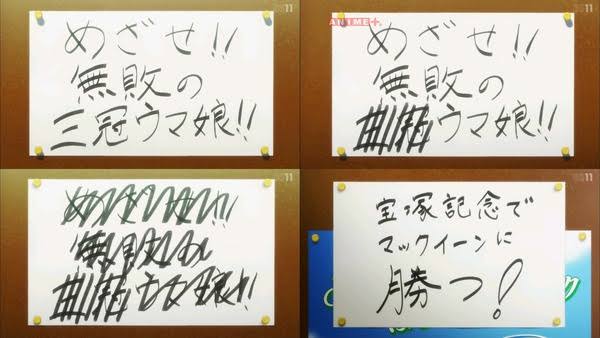 めざせ!!
無敗の
三冠ウマ娘!!
めざせ!!
無敗の
ウマ娘!!
めざせ!!
無敗の
ウマ娘!!
宝塚記念で
マックイーンに
勝つ!
ANIME+